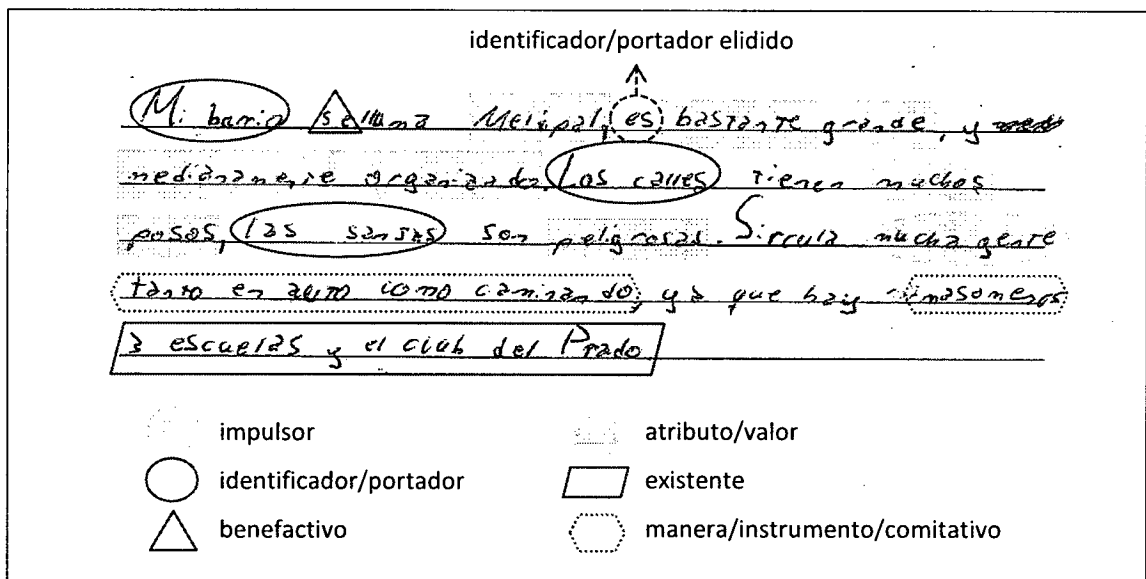 identificador/portador elidido
Mi barrio se llama Melipal, es bastante grande, y
medianamente organizado. Las calles tienen muchos
posos, las sansas son peligrosas. Sircula mucha gente
tanto en auto como caminando, ya que hay masomenos
3 escuelas y el club del Prado
impulsor atributo/valor
identificador/portador existente
benefactivo manera/instrumento/comitativo